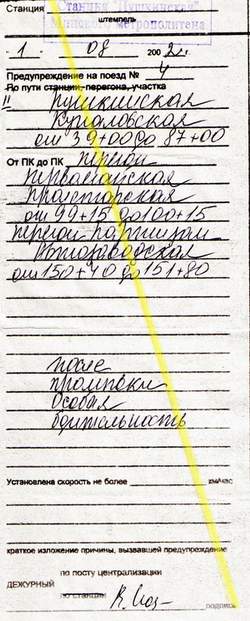 Станция Станция "Пушкинская"
Минского метрополитена
штемпель
1 08 2002 г.
Предупреждение на поезд № 4
По пути станции, перегона, участка
II Пушкинская
Купаловская
от 39+00 до 87+00
От ПК до ПК перегон
Первомайская
Пролетарская
от 99+15 до 100+15
перегон Партизан
Автозаводская
от 150+40 до 151+80
после
промывки
Особая
бдительность
Установлена скорость не более км/час
краткое изложение причины, вызвавшей предупреждение
по посту централизации
ДЕЖУРНЫЙ
по станции
подпись